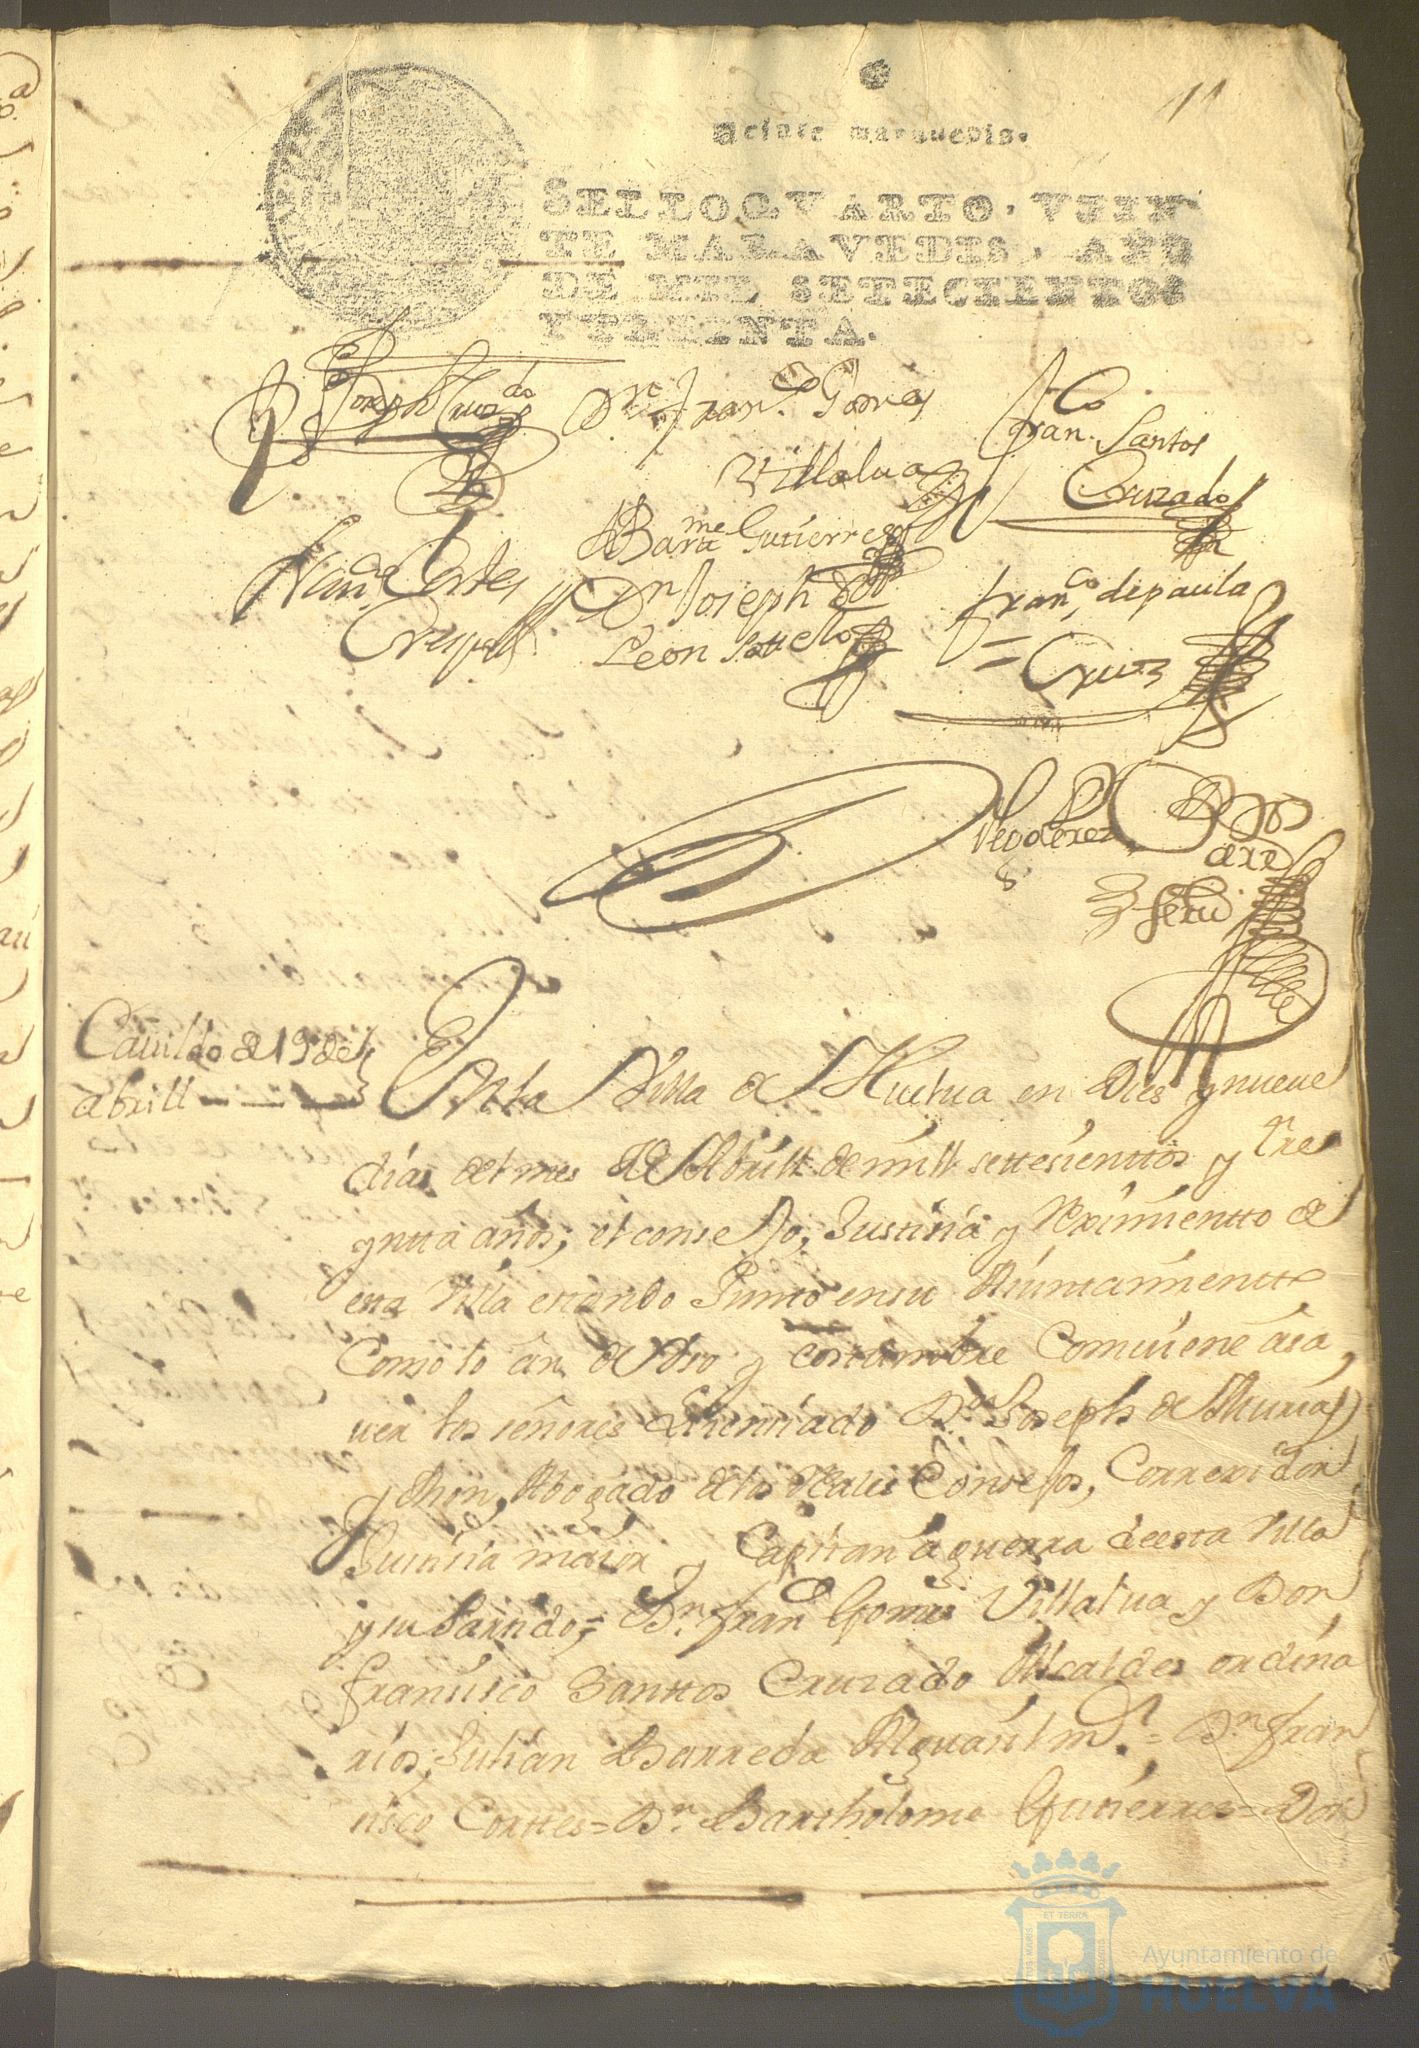 11
Veinte maravedis.
SELLO QVARTO, VEIN
TE MARAVEDIS, AÑO
DE MIL SETECIENTOS
Y TREINTA.
Joseph Cruz.do
Dn Fran.co Gomes
Villalua
Fran.co Santos
Cruzado
Bar.me Gutierres
Cortes
Dn Joseph
Leon
fran.co de paula
Cruz
Cauildo de 19 de
abrill
En la Villa de Huelua en Dies y nueue
dias del mes de Abrill de mill settesienttos y tre
yntta años; el consejo, Justisia y Reximientto de
esta Villa estando Juntto en su Aiuntamientto
Como lo an de Vsso y costumbre Combiene asa
uer los señores Lisensiado Dn Joseph de
Abogado de los Reales Consejos, Correxidor
Justisia maior y Capitan a guerra de esta Villa
y su partido; Dn fran.co Gomes Villalua y Don
fransisco Santtos Cruzado Alcaldes ordina
rios; Julian Barreda Alguasil m.or = Dn fran
sisco Corttes = Dn Bartholome Gutierres = Don
Ayuntamiento de
HUELVA